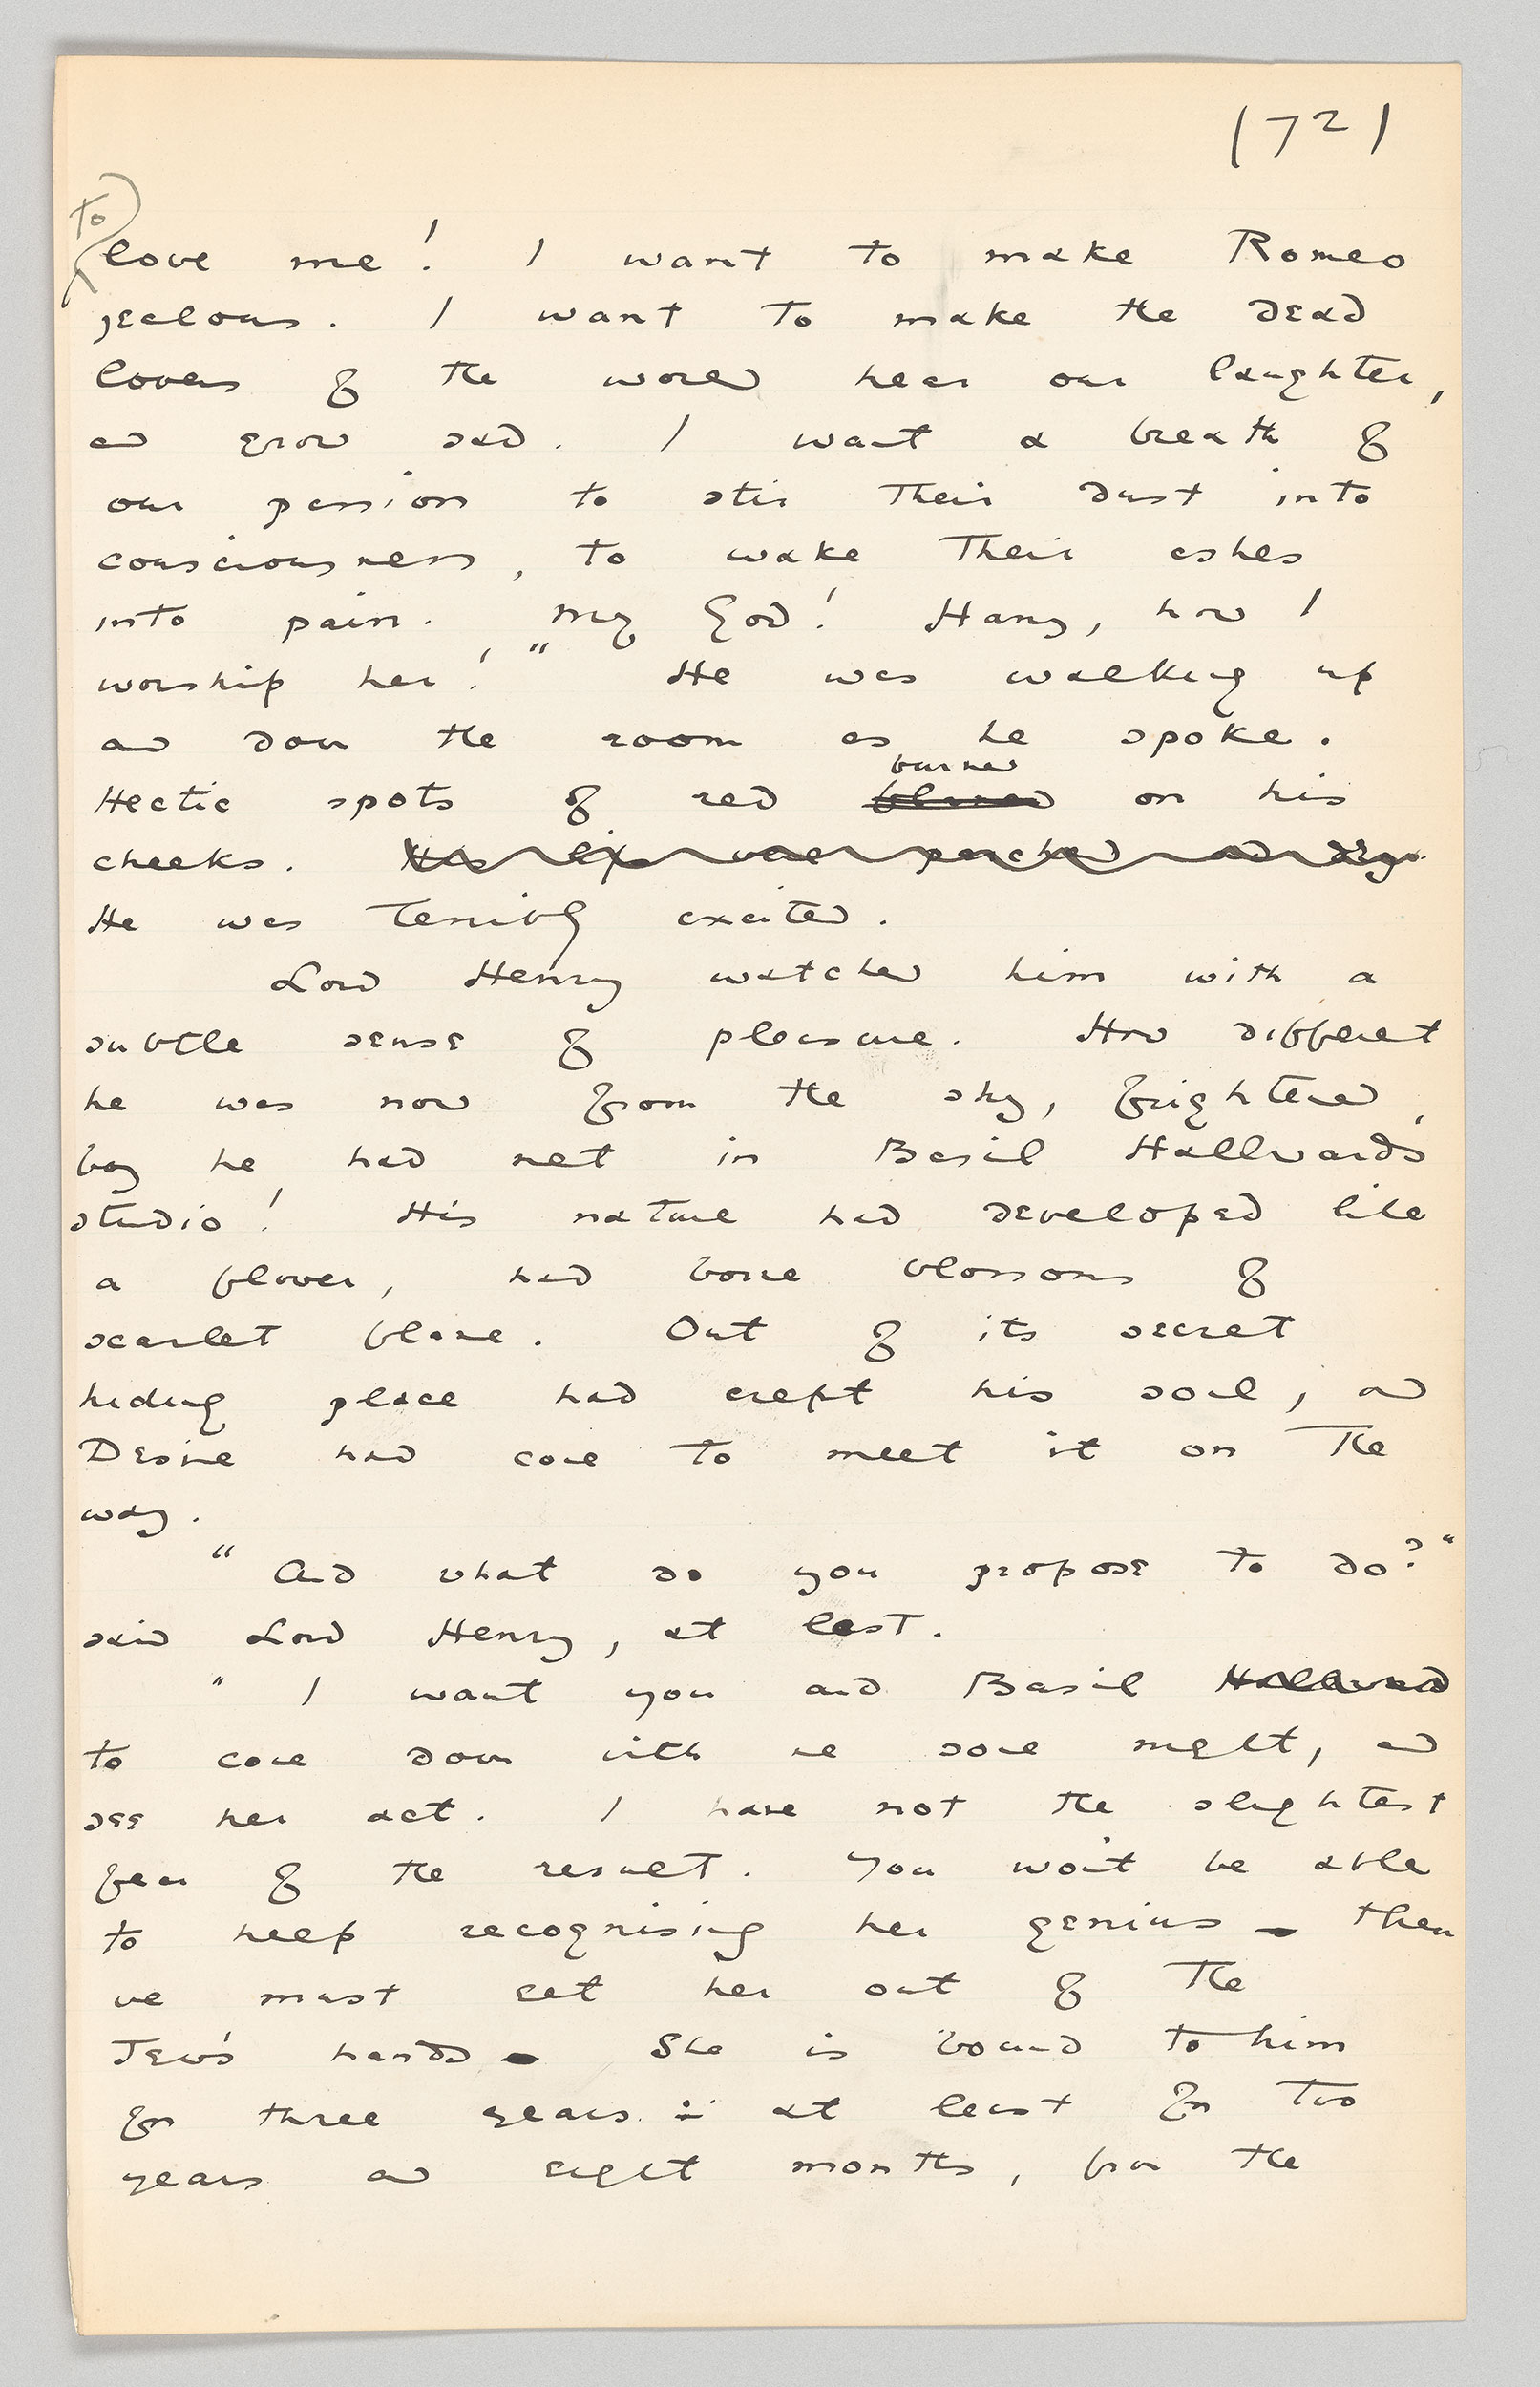 (72)
to
love me! I want to make Romeo
jealous. I want to make the dead
lovers of the world hear our laughter,
and grow sad. I want a breath of
our passion to stir their dust into
consciousness, to wake their ashes
into pain. My God! Harry, how I
worship her!" He was walking up
and down the room as he spoke.
burned
Hectic spots of red blazed on his
cheeks. His lips were parched and dry.
He was terribly excited.
Lord Henry watched him with a
subtle sense of pleasure. How different
he was now from the shy, frightened,
boy he had met in Basil Hallward's
studio! His nature had developed like
a flower, had borne blossoms of
scarlet flame. Out of its secret
hiding place had crept his soul, and
Desire had come to meet it on the
way.
"And what do you propose to do?"
said Lord Henry, at last.
"I want you and Basil Hallward
to come down with me some night, and
see her act. I have not the slightest
fear of the result. You won't be able
to help recognising her genius - then
we must get her out of the
Jew's hands - She is bound to him
for three years - at least for two
years and eight months, from the